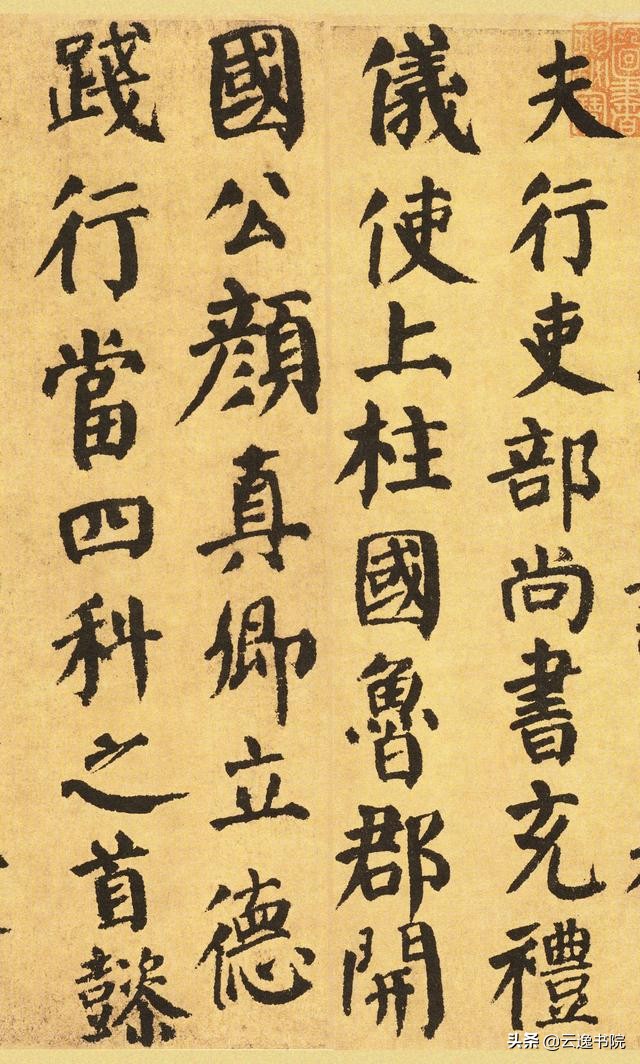 夫行吏部尚書充禮
儀使上柱國魯郡開
國公顏真卿立德
踐行當四科之首懿
头条 @云逸书院